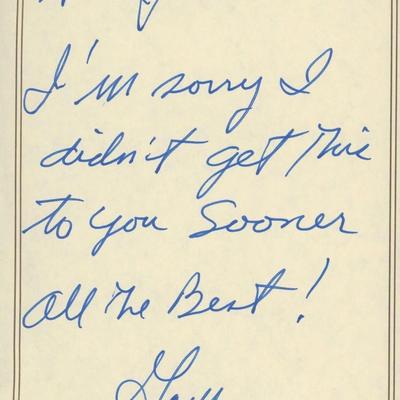 I'm sorry I
didn't get this
to you Sooner
All The Best!